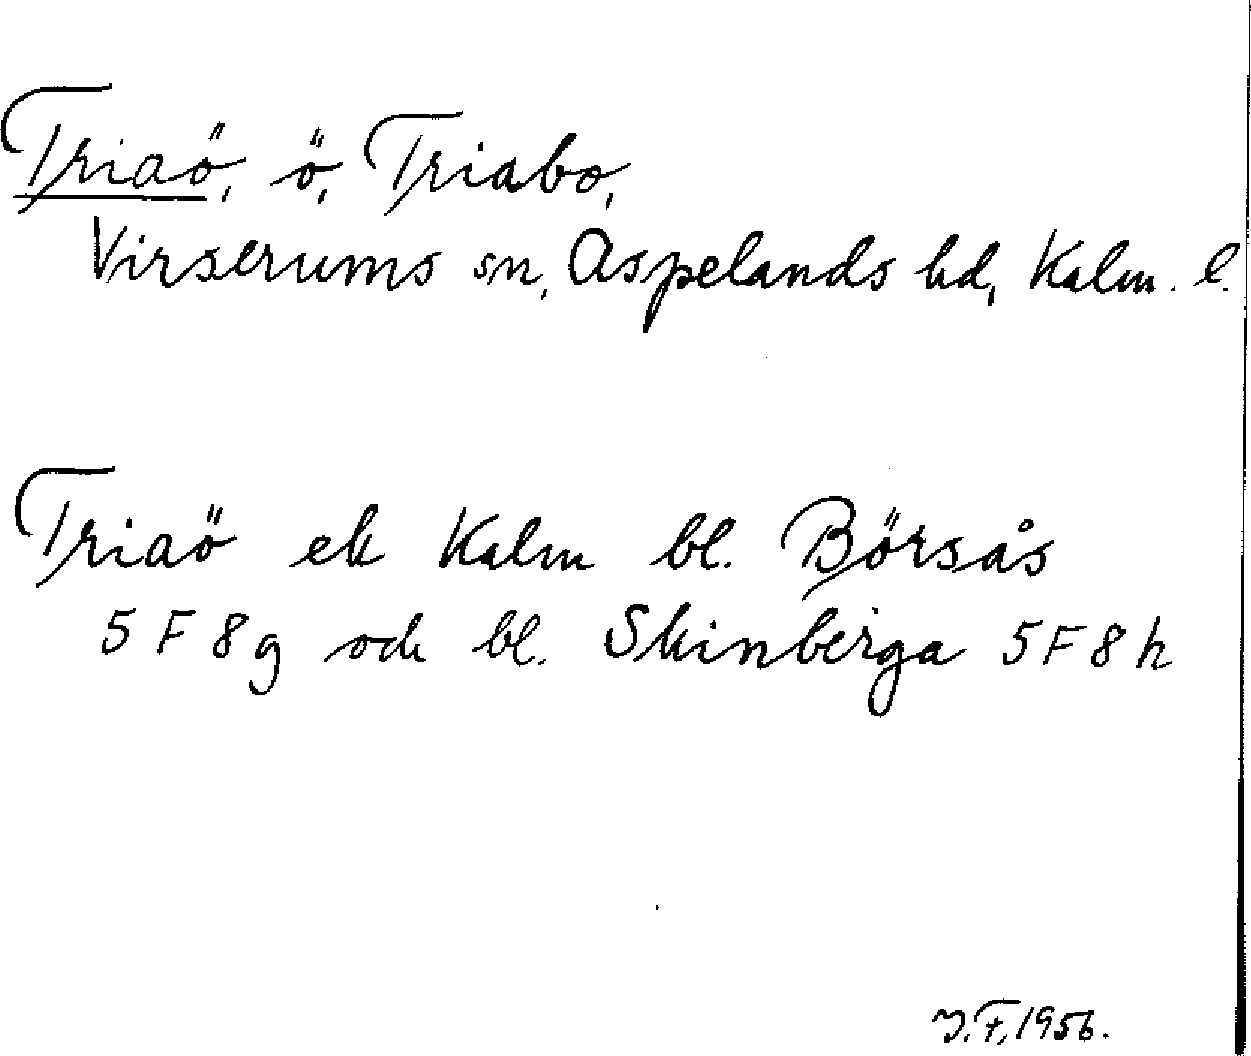 Triaö, ö, Triabo,
Virserums sn, Aspelands hd, Kalm. l.
Triaö ek Kalm bl. Börsås
5 F 8 g och bl. Skinberga 5 F 8 h
J. F. 1956.